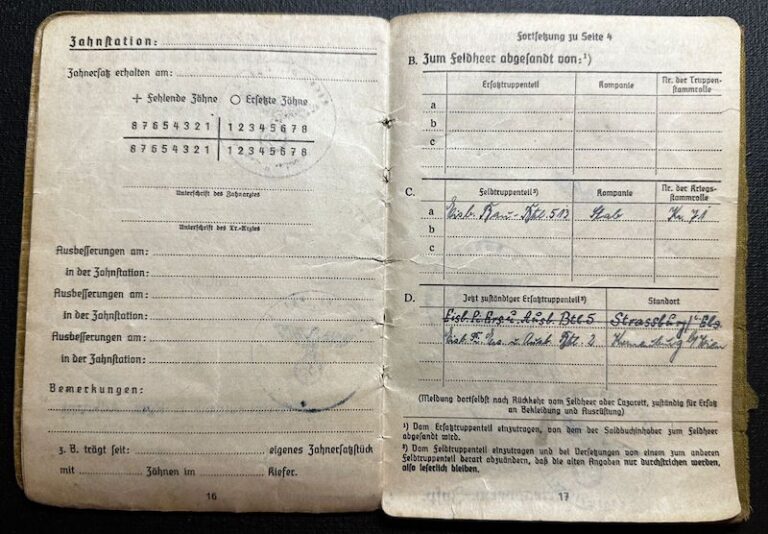 Zahnstation:
Zahnersatz erhalten am:
+ Fehlende Zähne O Ersetzte Zähne
8 7 6 5 4 3 2 1 | 1 2 3 4 5 6 7 8
8 7 6 5 4 3 2 1 | 1 2 3 4 5 6 7 8
Unterschrift des Zahnarztes
Unterschrift des Tr.-Arztes
Ausbesserungen am:
in der Zahnstation:
Ausbesserungen am:
in der Zahnstation:
Ausbesserungen am:
in der Zahnstation:
Bemerkungen:
z. B. trägt seit: eigenes Zahnersatzstück
mit Zähnen im Kiefer.
16
Fortsetzung zu Seite 4
B. Zum Feldheer abgesandt von:¹)
Ersatztruppenteil Kompanie Nr. der Truppen-
stammrolle
a
b
c
C. Feldtruppenteil²) Kompanie Nr. der Kriegs-
stammrolle
a Eisb. Bau-Btl. 512 Stab Nr. 71
b
c
D. Jetzt zuständiger Ersatztruppenteil²) Standort
Eisb. Pi. Ers. u. Ausb. Btl. 5 Strassburg i. Els.
Eisb. Pi. Ers. u. Ausb. Btl. 2
(Meldung dortselbst nach Rückkehr vom Feldheer oder Lazarett, zuständig für Ersatz
an Bekleidung und Ausrüstung)
¹) Vom Ersatztruppenteil einzutragen, von dem der Soldbuchinhaber zum Feldheer
abgesandt wird.
²) Vom Feldtruppenteil einzutragen und bei Versetzungen von einem zum anderen
Feldtruppenteil derart abzuändern, daß die alten Angaben nur durchstrichen werden,
also leserlich bleiben.
17